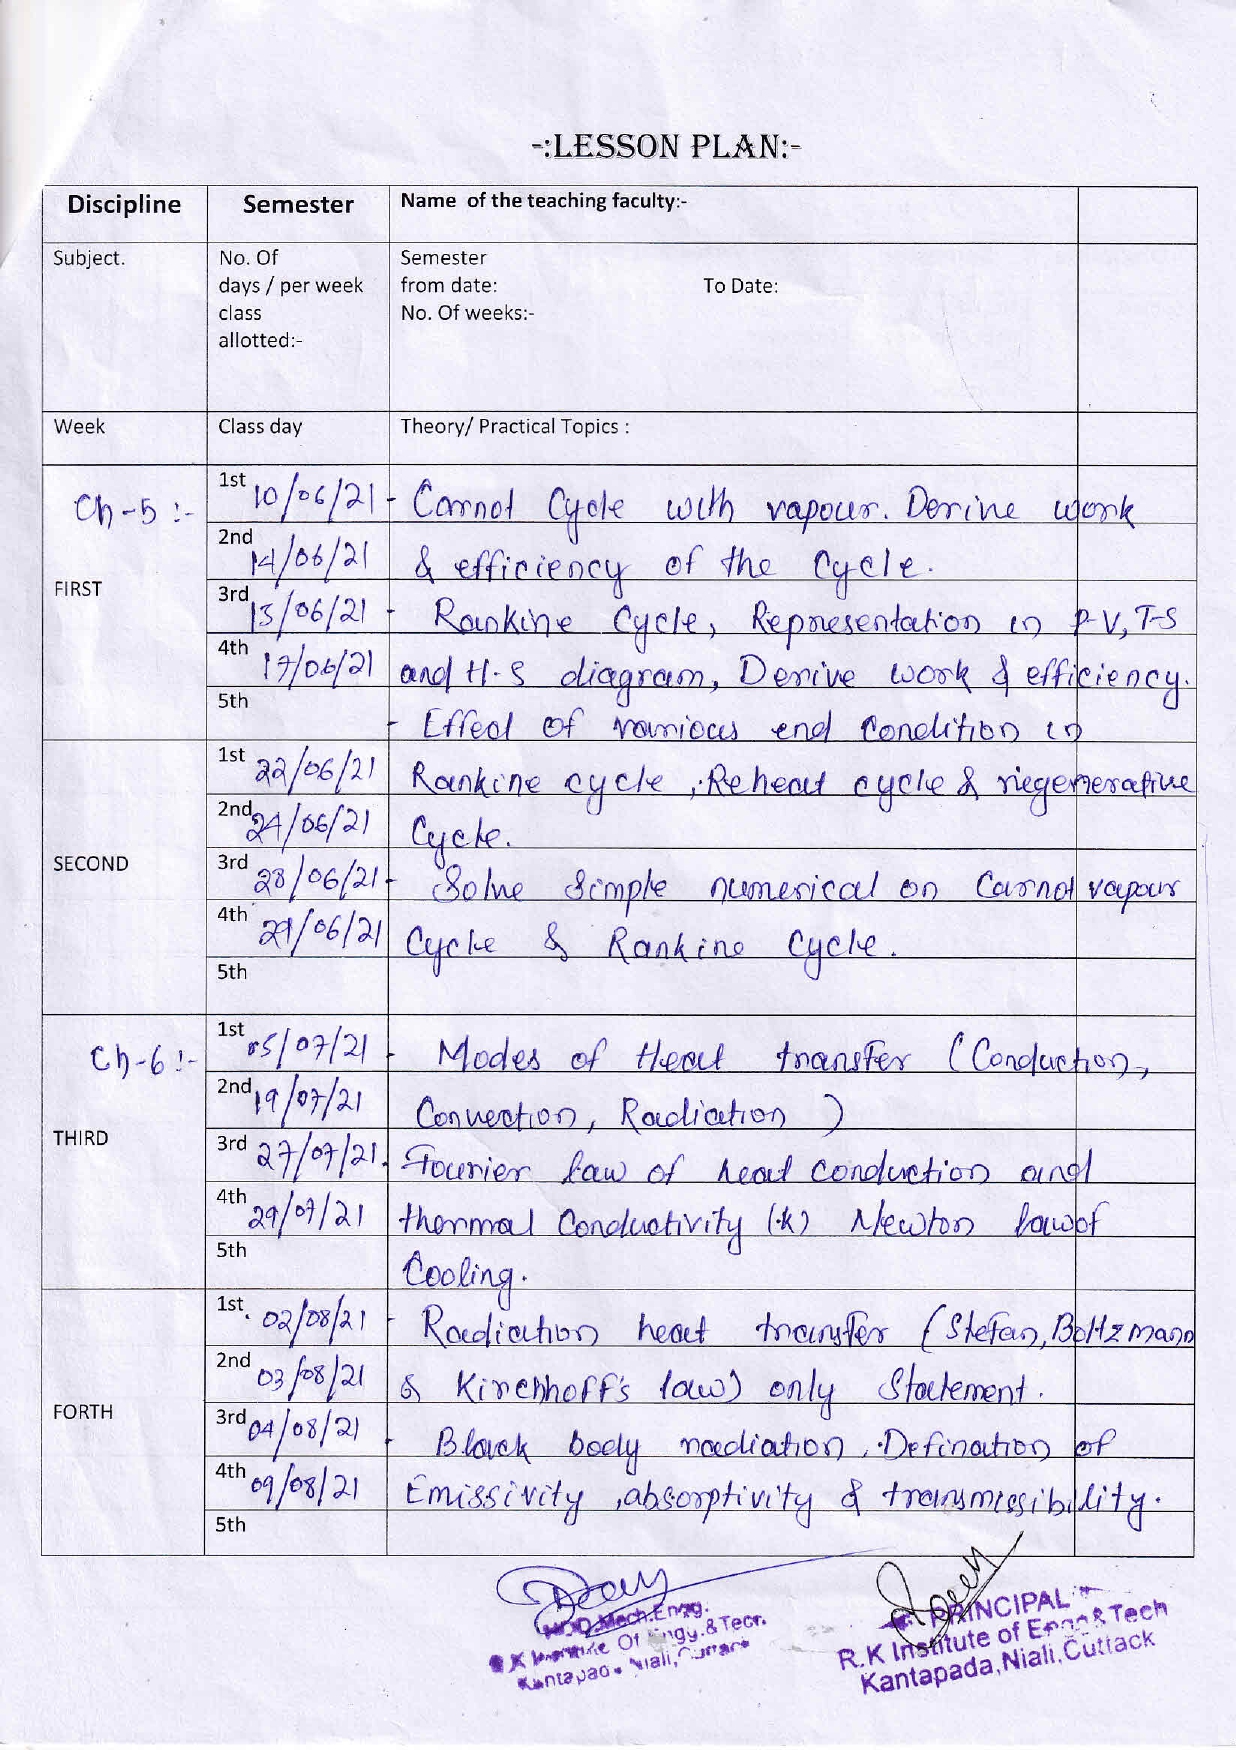 -:LESSON PLAN:-
Discipline Semester Name of the teaching faculty:-
Subject. No. Of Semester
days / per week from date: To Date:
class No. Of weeks:-
allotted:-
Week Class day Theory/ Practical Topics :
1st 10/06/21 - Carnot Cycle with vapour. Derive work
Ch-5 :-
2nd 14/06/21 & efficiency of the Cycle.
FIRST
3rd 15/06/21 - Rankine Cycle, Representation in P-V, T-S
4th 17/06/21 and H-S diagram, Derive work & efficiency.
5th
- Effect of various end Condition in
1st 22/06/21 Rankine cycle, Reheat cycle & regenerative
2nd 24/06/21 Cycle.
SECOND
3rd 28/06/21 - Solve Simple numerical on Carnot vapour
4th 29/06/21 Cycle & Rankine Cycle.
5th
1st 05/07/21 - Modes of Heat transfer (Conduction,
Ch-6 :-
2nd 19/07/21 Convection, Radiation )
THIRD
3rd 27/07/21. Fourier law of heat conduction and
4th 29/07/21 thermal Conductivity (k) Newton law of
5th
Cooling.
1st. 02/08/21 - Radiation heat transfer (Stefan, Boltzmann
2nd 03/08/21 & Kirchhoff's law) only Statement.
FORTH
3rd 04/08/21 - Black body radiation, Defination of
4th 09/08/21 Emissivity, absorptivity & transmissibility.
5th
HOD Mech.Engg.
PRINCIPAL
R.K Institute of Engg & Tech
Kantapada, Niali, Cuttack